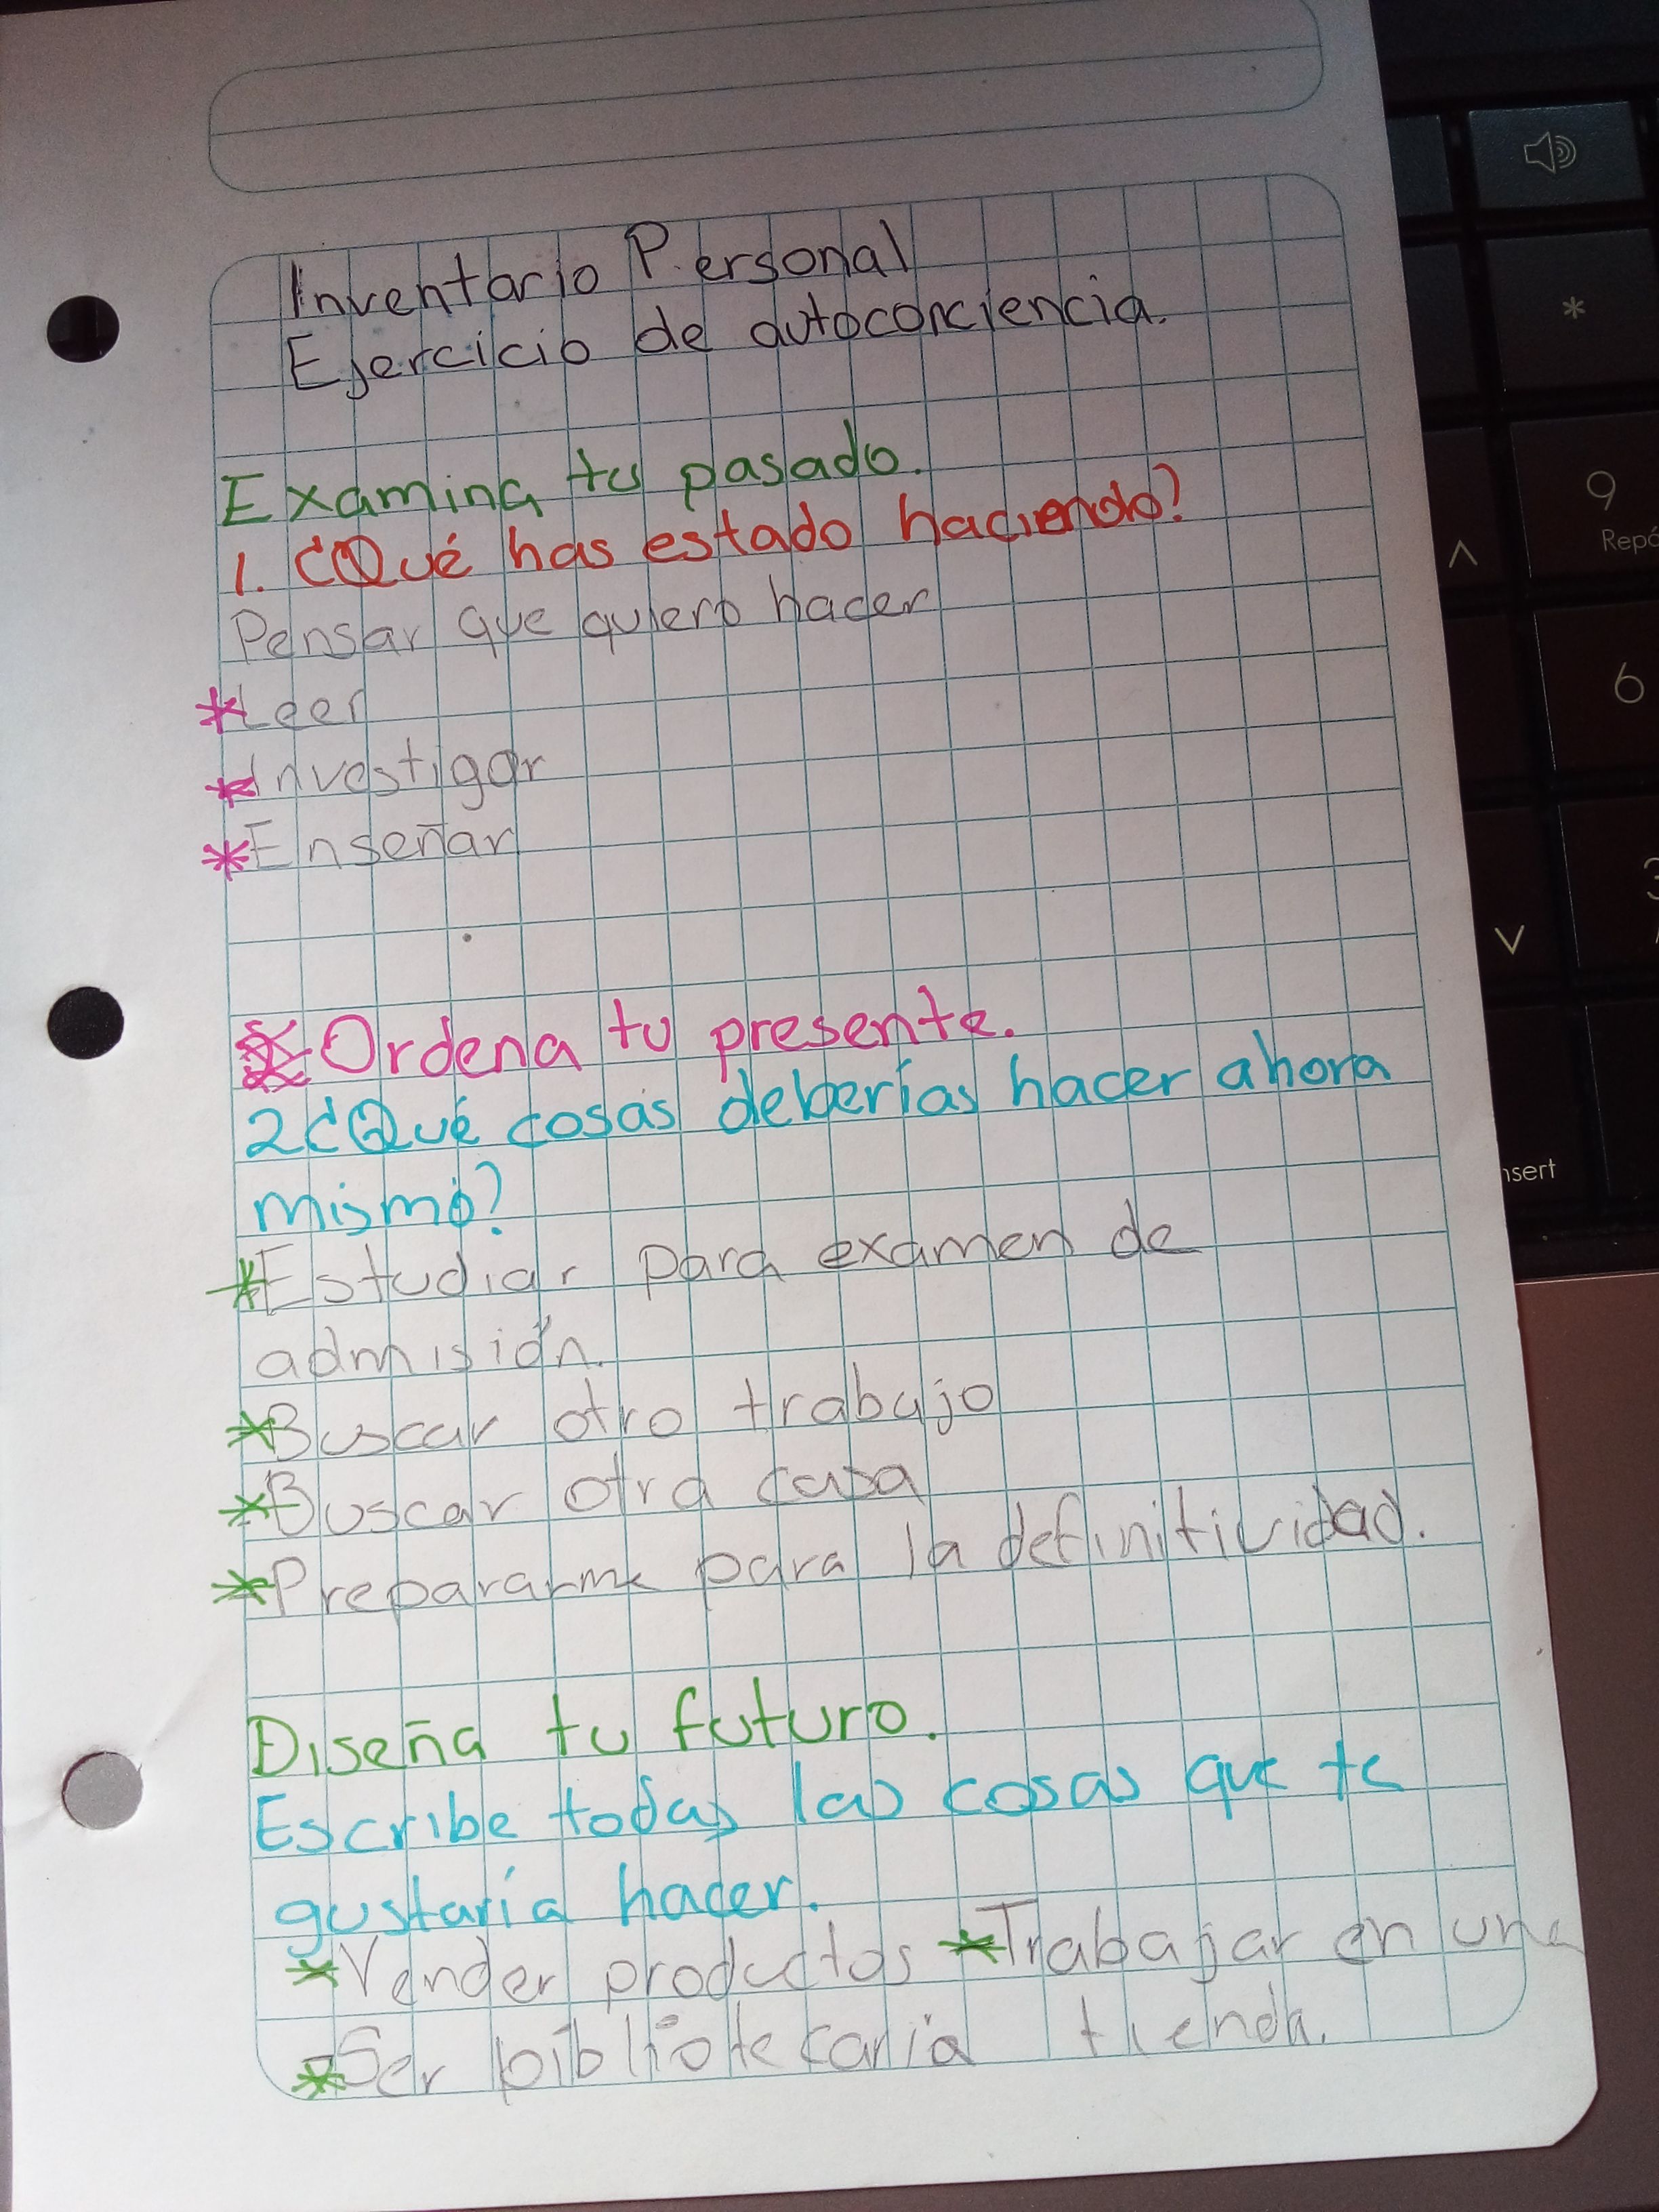 Inventario Personal
Ejercicio de autoconciencia.
Examina tu pasado.
1. ¿Qué has estado haciendo?
Pensar que quiero hacer
*Leer
*Investigar
*Enseñar
Ordena tu presente.
2¿Qué cosas deberías hacer ahora
mismo?
*Estudiar para examen de
admisión.
*Buscar otro trabajo
*Buscar otra casa
*Prepararme para la definitividad.
Diseña tu futuro.
Escribe todas las cosas que te
gustaría hacer.
*Vender productos *Trabajar en una
*Ser bibliotecaria tienda.
*
9
Repá
^
6
3
v
nsert